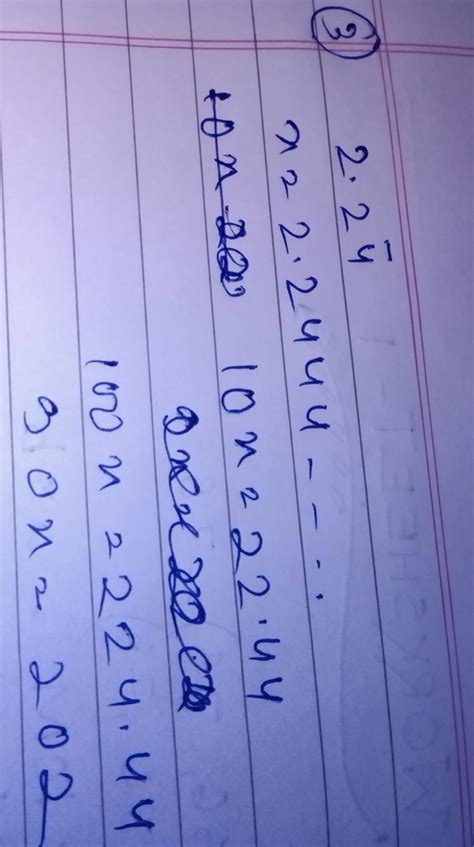 ③ 2.24̄
x = 2.2444 - - - ..
10x 10x = 22.44
100x = 224.44
90x = 202